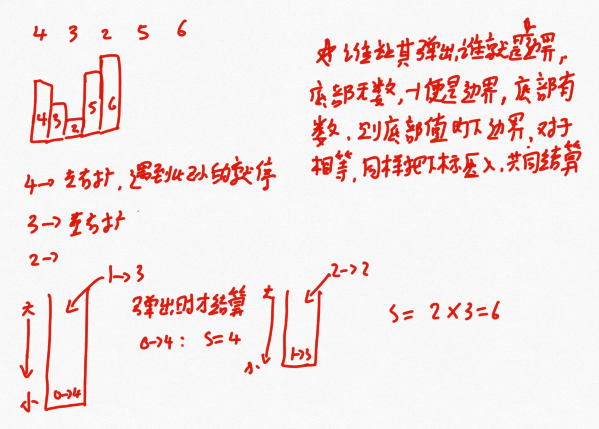 4 3 2 5 6
4 3 2 5 6
4→ 左右扩,遇到比它小的就停
3→ 左右扩
2→
谁让其弹出,谁就是右边界,
底部无数,-1便是边界,底部有
数,则底部值的下边界,对于
相等,同样把下标压入,共同结算
1→3
大
小
0→4
弹出时才结算
0→4: S=4
2→2
大
小
1→3
S= 2×3=6